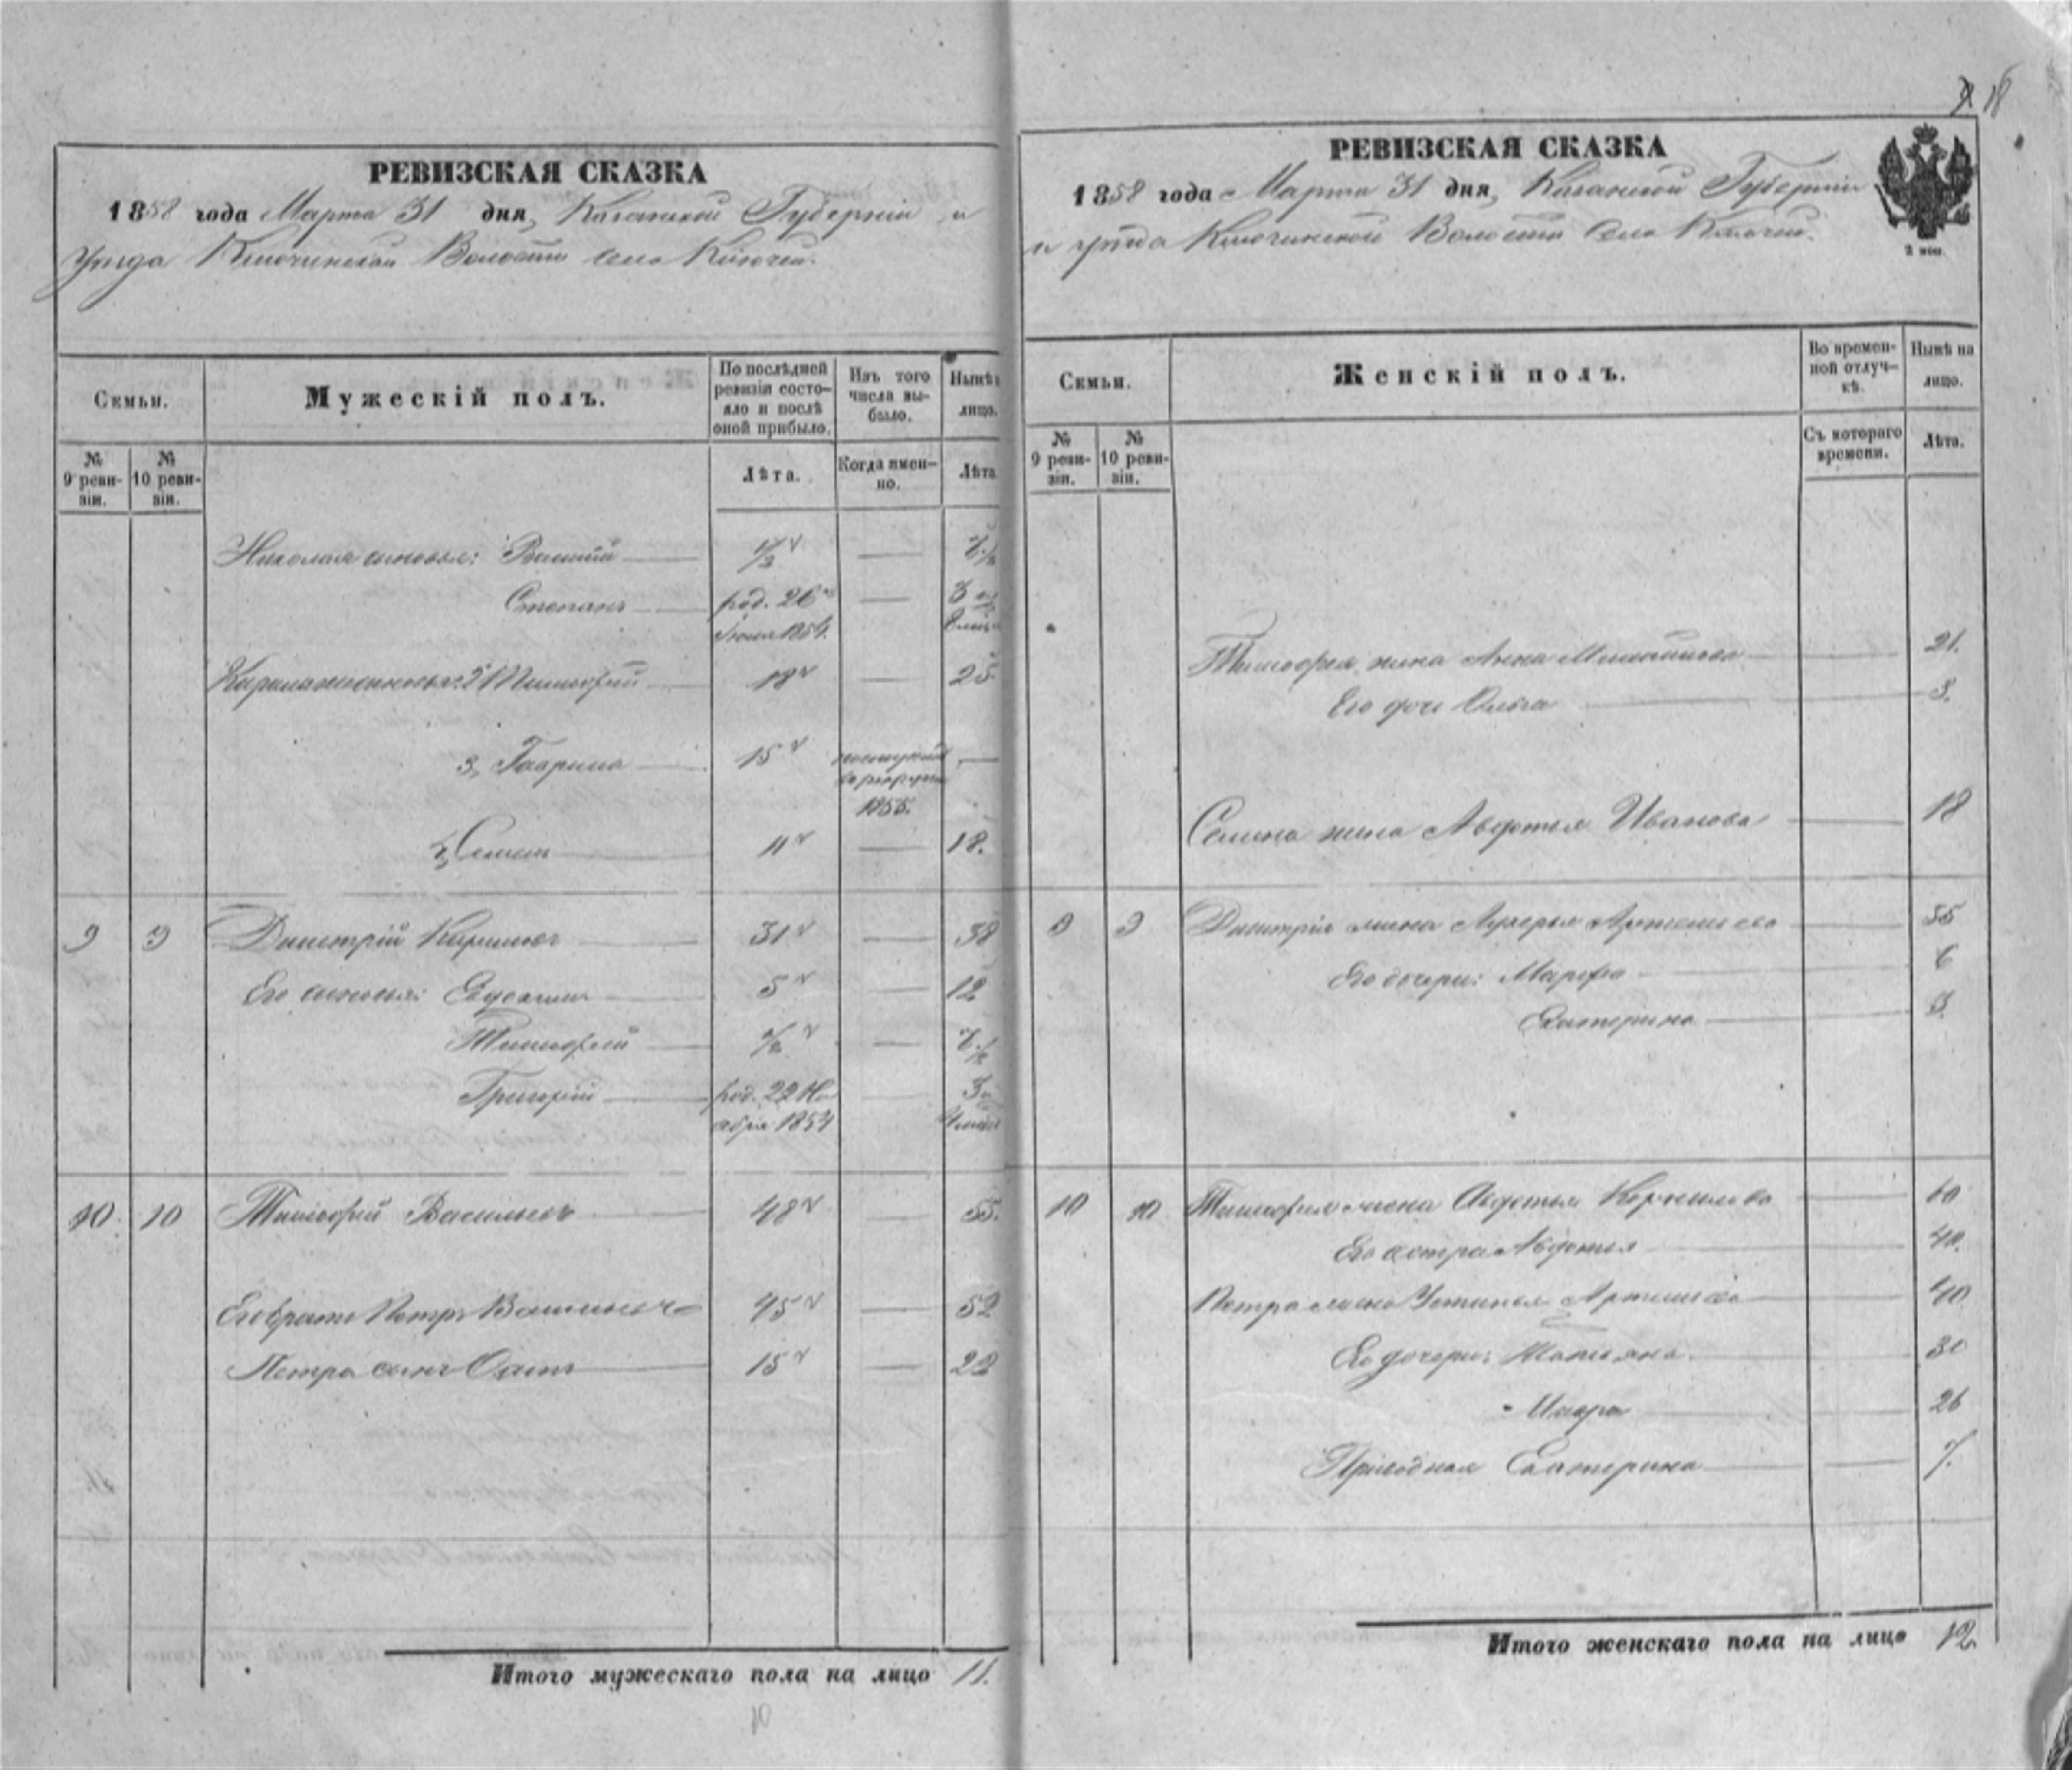 18
РЕВИЗСКАЯ СКАЗКА
1858 года Марта 31 дня, Казанской Губерніи и
уѣзда Ключинской Волости села Ключей.
Семьи.
Мужескій полъ.
По послѣдней ревизіи состояло и послѣ оной прибыло.
Изъ того числа выбыло.
Нынѣ лицо.
№ 9 ревизіи.
№ 10 ревизіи.
Лѣта.
Когда именно.
Лѣта
Николая сыновья: Василій 1/2 — 7 1/2
Степанъ род. 26 Іюня 1854. — 3 и
2 Тимофей 18 — 25
3, Гаврила 15 поступилъ въ рекруты 1855. —
4, Семенъ 11 — 18.
9 9 Дмитрій Кириловъ 31 — 38
Его сыновья: Евдокимъ 5 — 12
Тимофей 1/2 — 7 1/2
Григорій род. 22 Ноября 1854 — 3 и 4 мѣс
10 10 Тимофей Васильевъ 48 — 55.
Его братъ Петръ Васильевъ 45 — 52
Петра сынъ Осипъ 15 — 22
Итого мужескаго пола на лицо 11.
10
РЕВИЗСКАЯ СКАЗКА
1858 года Марта 31 дня, Казанской Губерніи
и уѣзда Ключинской Волости села Ключей.
2 коп.
Семьи.
Женскій полъ.
Во временной отлучкѣ.
Нынѣ на лицо.
№ 9 ревизіи.
№ 10 ревизіи.
Съ котораго времени.
Лѣта.
Тимофея жена Анна Михайлова 21.
Его дочь Ольга 3.
Семена жена Авдотья Иванова 18
9 9 Дмитрія жена Лукерья Артемьева 35
Его дочери: Марфа 6
Екатерина 3.
10 10 Тимофея жена Авдотья Корнилова 60
Его сестра Авдотья 40.
Петра жена Устинья Артемьева 40
Его дочери: Татьяна 30
Мавра 26
Екатерина 7.
Итого женскаго пола на лицо 12.